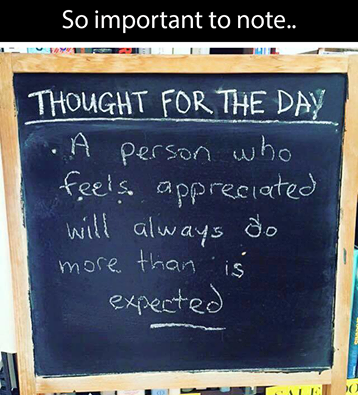 So important to note..
THOUGHT FOR THE DAY
. A person who
feels appreciated
will always do
more than is
expected
SALE